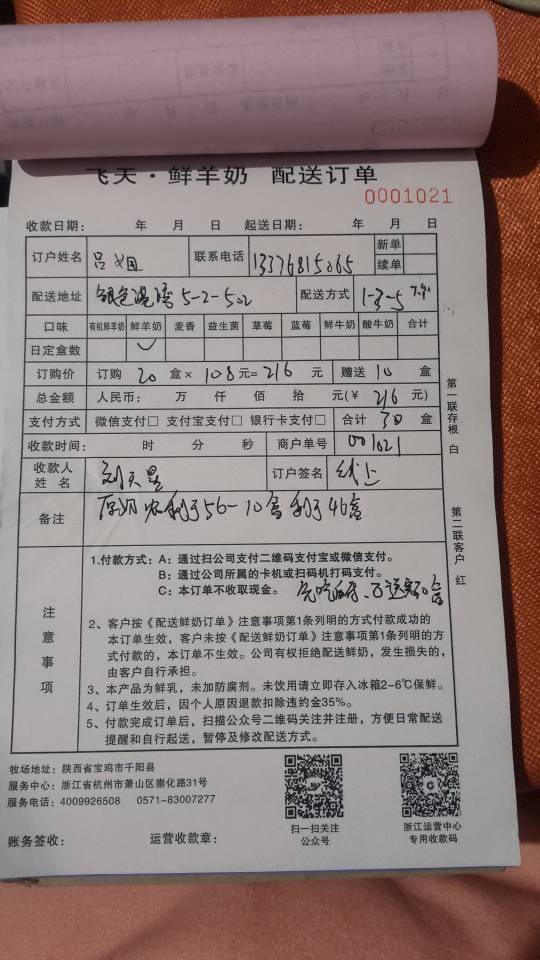 飞天·鲜羊奶 配送订单
0001021
收款日期： 年 月 日 起送日期： 年 月 日
订户姓名 吕 联系电话 13376815065 新单
续单
配送地址 银色港湾 5-2-502 配送方式 1-3-5
口味 有机鲜羊奶 鲜羊奶 麦香 益生菌 草莓 蓝莓 鲜牛奶 酸牛奶 合计
日定盒数 ✓
订购价 订购 20 盒× 10.8 元= 216 元 赠送 10 盒
总金额 人民币： 万 仟 佰 拾 元(￥ 216 元)
支付方式 微信支付□ 支付宝支付□ 银行卡支付□ 合计 30 盒
收款时间： 时 分 秒 商户单号 001021
收款人姓名 刘天 订户签名 线上
备注 剩了56-10盒剩了46盒
第一联存根 白
第二联客户 红
注意事项
1.付款方式：A：通过扫公司支付二维码支付宝或微信支付。
B：通过公司所属的卡机或扫码机打码支付。
C：本订单不收取现金。
2、客户按《配送鲜奶订单》注意事项第1条列明的方式付款成功的
本订单生效，客户未按《配送鲜奶订单》注意事项第1条列明的方
式付款的，本订单不生效。公司有权拒绝配送鲜奶，发生损失的，
由客户自行承担。
3、本产品为鲜乳，未加防腐剂。未饮用请立即存入冰箱2-6℃保鲜。
4、订单生效后，因个人原因退款扣除违约金35%。
5、付款完成订单后，扫描公众号二维码关注并注册，方便日常配送
提醒和自行起送，暂停及修改配送方式。
牧场地址：陕西省宝鸡市千阳县
服务中心：浙江省杭州市萧山区崇化路31号
服务电话：4009926508 0571-83007277
扫一扫关注
公众号
浙江运营中心
专用收款码
账务签收： 运营收款章：